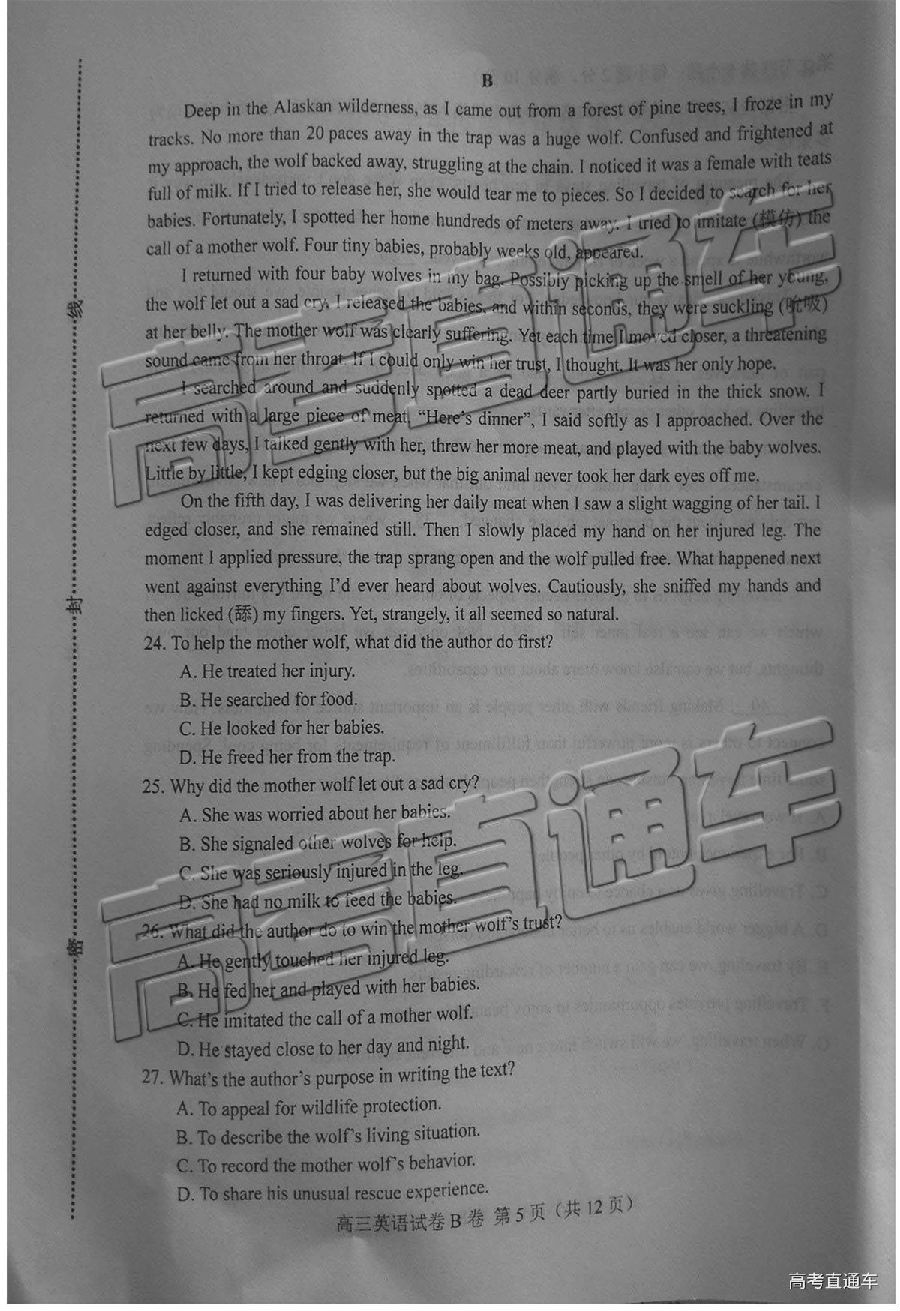 B
Deep in the Alaskan wilderness, as I came out from a forest of pine trees, I froze in my
tracks. No more than 20 paces away in the trap was a huge wolf. Confused and frightened at
my approach, the wolf backed away, struggling at the chain. I noticed it was a female with teats
full of milk. If I tried to release her, she would tear me to pieces. So I decided to search for her
babies. Fortunately, I spotted her home hundreds of meters away. I tried to imitate (模仿) the
call of a mother wolf. Four tiny babies, probably weeks old, appeared.
I returned with four baby wolves in my bag. Possibly picking up the smell of her young,
the wolf let out a sad cry. I released the babies, and within seconds, they were suckling (吮吸)
at her belly. The mother wolf was clearly suffering. Yet each time I moved closer, a threatening
sound came from her throat. If I could only win her trust, I thought. It was her only hope.
I searched around and suddenly spotted a dead deer partly buried in the thick snow. I
returned with a large piece of meat. “Here's dinner”, I said softly as I approached. Over the
next few days, I talked gently with her, threw her more meat, and played with the baby wolves.
Little by little, I kept edging closer, but the big animal never took her dark eyes off me.
On the fifth day, I was delivering her daily meat when I saw a slight wagging of her tail. I
edged closer, and she remained still. Then I slowly placed my hand on her injured leg. The
moment I applied pressure, the trap sprang open and the wolf pulled free. What happened next
went against everything I'd ever heard about wolves. Cautiously, she sniffed my hands and
then licked (舔) my fingers. Yet, strangely, it all seemed so natural.
24. To help the mother wolf, what did the author do first?
A. He treated her injury.
B. He searched for food.
C. He looked for her babies.
D. He freed her from the trap.
25. Why did the mother wolf let out a sad cry?
A. She was worried about her babies.
B. She signaled other wolves for help.
C. She was seriously injured in the leg.
D. She had no milk to feed the babies.
26. What did the author do to win the mother wolf's trust?
A. He gently touched her injured leg.
B. He fed her and played with her babies.
C. He imitated the call of a mother wolf.
D. He stayed close to her day and night.
27. What's the author's purpose in writing the text?
A. To appeal for wildlife protection.
B. To describe the wolf's living situation.
C. To record the mother wolf's behavior.
D. To share his unusual rescue experience.
高三英语试卷 B 卷 第 5 页（共 12 页）
线
封
密
高考直通车
高考直通车
高考直通车